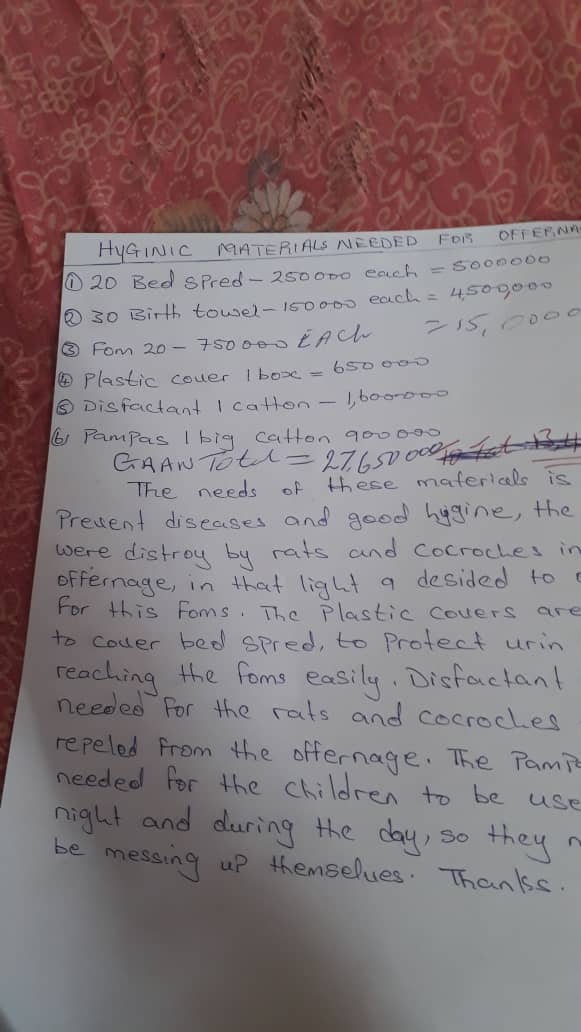 HYGINIC MATERIALS NEEDED FOR OFFERNA
① 20 Bed spred - 250000 each = 5000000
② 30 Birth towel - 150000 each = 4,500,000
③ Fom 20 - 750000 EACh = 15, 0000
④ Plastic couer 1 box = 650 000
⑤ Disfactant 1 catton - 1,600000
⑥ Pampas 1 big catton 900000
GAAN Total = 27,650 000
The needs of these materials is
Prevent diseases and good hygine, the
were distroy by rats and cocroches in
offernage, in that light a desided to
For this Foms. The Plastic Couers are
to couer bed spred, to Protect urin
reaching the foms easily. Disfactant
needed for the rats and cocroches
repeled from the offernage. The Pamp
needed for the children to be use
night and during the day, so they n
be messing up themselues. Thankss.